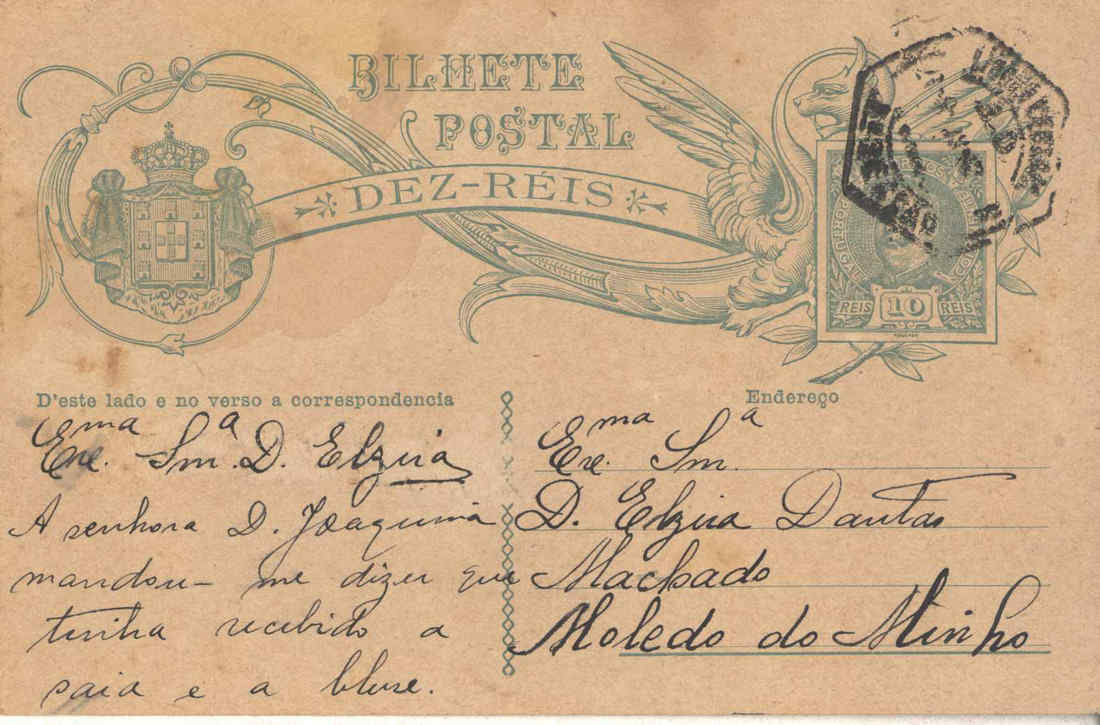 BILHETE
POSTAL
DEZ-RÉIS
PORTUGAL
REIS 10 REIS
D'este lado e no verso a correspondencia
Exma. Snra. D. Elzira
A senhora D. Joaquina
mandou-me dizer que
tinha recebido a
saia e a bluse.
Endereço
Exma. Snra.
D. Elzira Dantas
Machado
Moledo do Minho